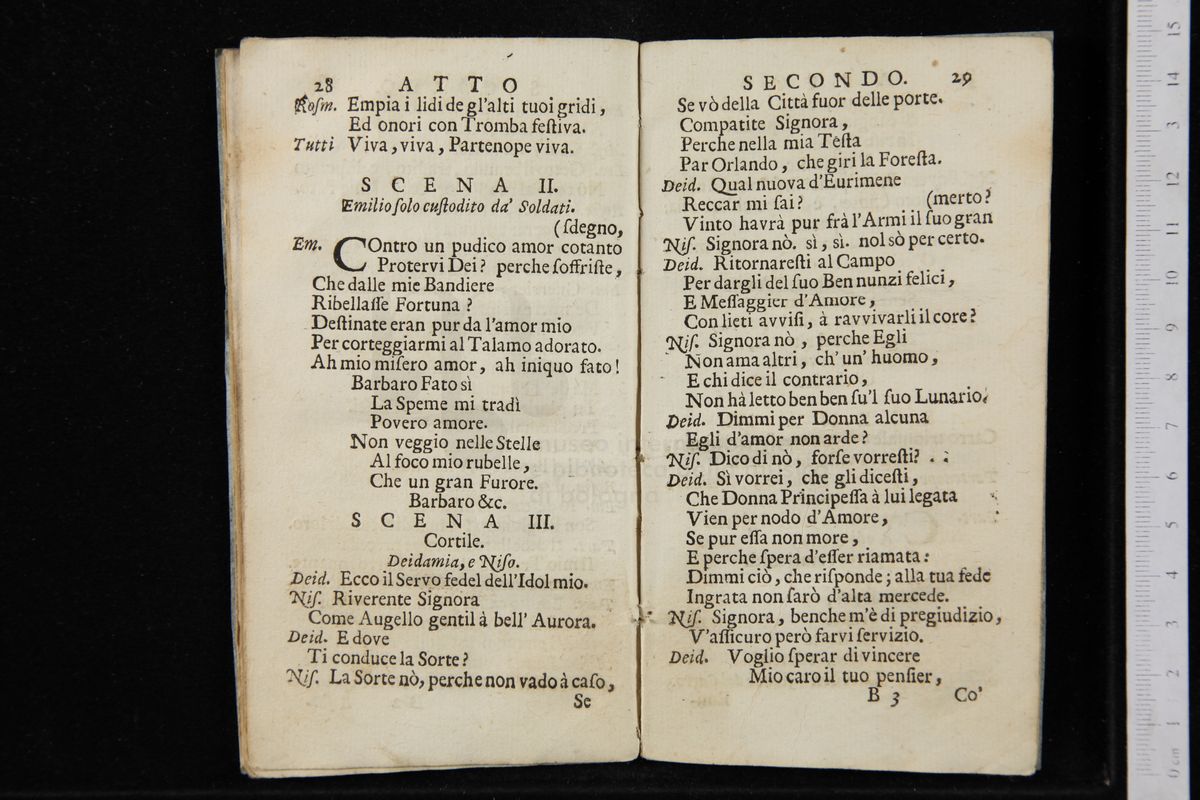 28 ATTO
Rosm. Empia i lidi de gl'alti tuoi gridi,
Ed onori con Tromba festiva.
Tutti Viva, viva, Partenope viva.
SCENA II.
Emilio solo custodito da' Soldati.
(sdegno,
Em. COntro un pudico amor cotanto
Protervi Dei? perche soffriste,
Che dalle mie Bandiere
Ribellasse Fortuna?
Destinate eran pur da l'amor mio
Per corteggiarmi al Talamo adorato.
Ah mio misero amor, ah iniquo fato!
Barbaro Fato sì
La Speme mi tradì
Povero amore.
Non veggio nelle Stelle
Al foco mio rubelle,
Che un gran Furore.
Barbaro &c.
SCENA III.
Cortile.
Deidamia, e Niso.
Deid. Ecco il Servo fedel dell'Idol mio.
Nis. Riverente Signora
Come Augello gentil à bell' Aurora.
Deid. E dove
Ti conduce la Sorte?
Nis. La Sorte nò, perche non vado à caso,
Se
SECONDO. 29
Se vò della Città fuor delle porte.
Compatite Signora,
Perche nella mia Testa
Par Orlando, che giri la Foresta.
Deid. Qual nuova d'Eurimene
Reccar mi sai? (merto?
Vinto havrà pur frà l'Armi il suo gran
Nis. Signora nò. sì, sì. nol sò per certo.
Deid. Ritornaresti al Campo
Per dargli del suo Ben nunzi felici,
E Messaggier d'Amore,
Con lieti avvisi, à ravvivarli il core?
Nis. Signora nò, perche Egli
Non ama altri, ch' un' huomo,
E chi dice il contrario,
Non hà letto ben ben su'l suo Lunario.
Deid. Dimmi per Donna alcuna
Egli d'amor non arde?
Nis. Dico di nò, forse vorresti? . .
Deid. Sì vorrei, che gli dicesti,
Che Donna Principessa à lui legata
Vien per nodo d'Amore,
Se pur essa non more,
E perche spera d'esser riamata:
Dimmi ciò, che risponde; alla tua fede
Ingrata non sarò d'alta mercede.
Nis. Signora, benche m'è di pregiudizio,
V'assicuro però farvi servizio.
Deid. Voglio sperar di vincere
Mio caro il tuo pensier,
B 3 Co'